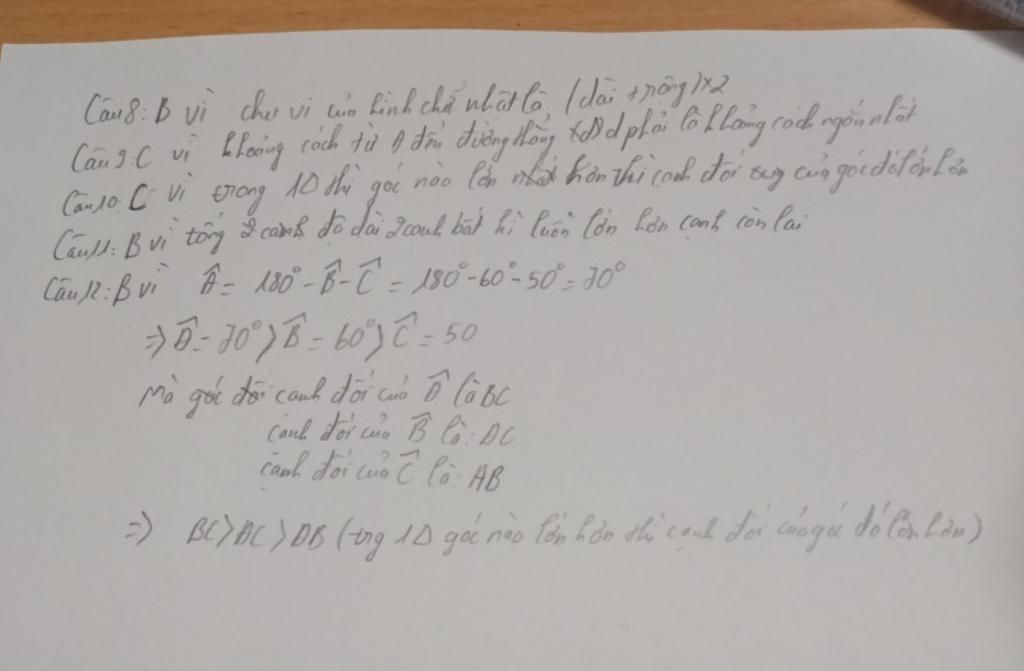 Câu 8: B vì chu vi của hình chữ nhật là (dài + rộng)×2
Câu 9: C vì khoảng cách từ A đến đường thẳng d phải là khoảng cách ngắn nhất
Câu 10: C vì trong 1Δ thì góc nào lớn hơn thì cạnh đối của góc đó lớn hơn
Câu 11: B vì tổng 2 cạnh độ dài 2 cạnh bất kì luôn lớn hơn cạnh còn lại
Câu 12: B vì Â = 180° - B̂ - Ĉ = 180° - 60° - 50° = 70°
=> Â = 70° > B̂ = 60° > Ĉ = 50
Mà góc đối cạnh đối của Â là BC
cạnh đối của B̂ là: AC
cạnh đối của Ĉ là: AB
=> BC > AC > AB (trg 1Δ góc nào lớn hơn thì cạnh đối của góc đó lớn hơn)